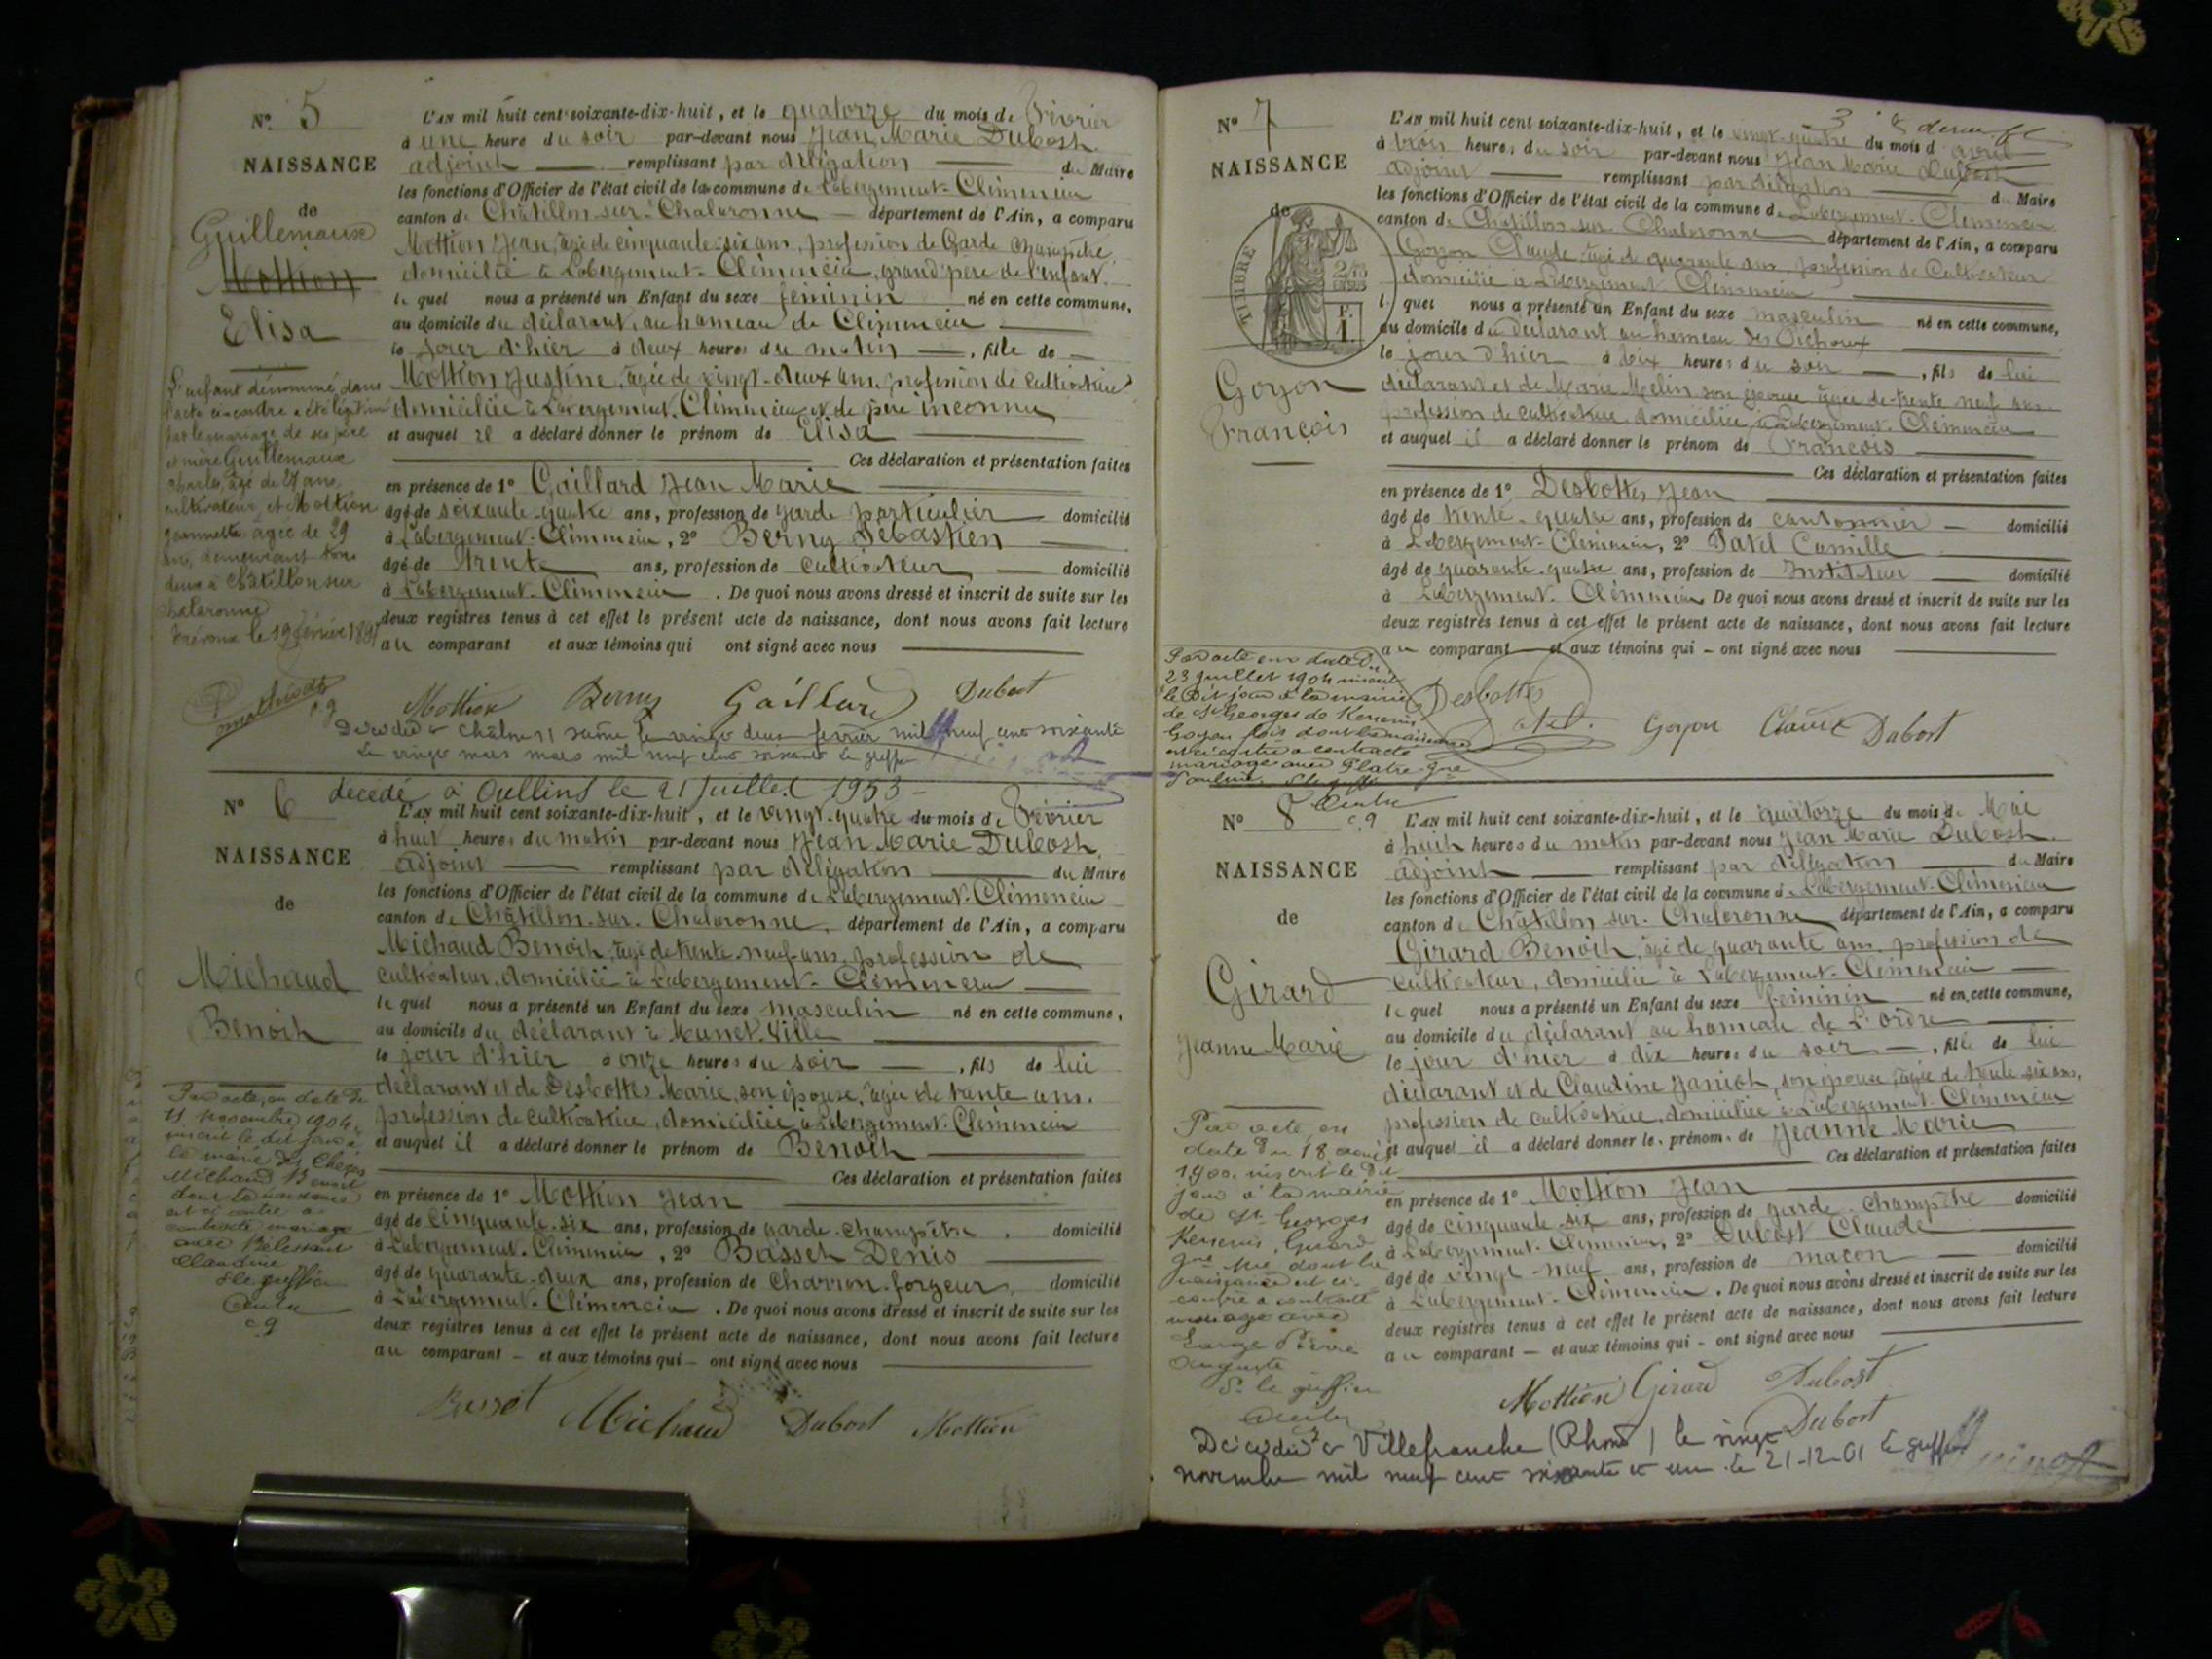 N° 5
NAISSANCE
de
Guillemaux
Mottion
Elisa
L'enfant dénommé dans
l'acte ci-contre a été légitimé
par le mariage de ses père
et mère Guillemaux
Charles, âgé de 27 ans,
cultivateur, et Mottion
Jeannette âgée de 29
ans, demeurant tous
deux à Châtillon sur
Chalaronne
Trévoux le 19 février
L'AN mil huit cent soixante-dix-huit, et le quatorze du mois de Février
à une heure du soir par-devant nous Jean Marie Dubost
adjoint remplissant par délégation du Maire
les fonctions d'Officier de l'état civil de la commune de L'abergement-Clémencia
canton de Châtillon-sur-Chalaronne département de l'Ain, a comparu
Mottion Jean, âgé de cinquante-six ans, profession de Garde champêtre,
domicilié à L'abergement-Clémencia, grand'père de l'enfant.
lequel nous a présenté un Enfant du sexe féminin né en cette commune,
au domicile du déclarant, au hameau de Clémencia
le jour d'hier à deux heures du matin, fille de
Mottion Justine, âgée de vingt-deux ans, profession de cultivatrice
domiciliée à L'abergement-Clémencia et de père inconnu
et auquel il a déclaré donner le prénom de Elisa
Ces déclaration et présentation faites
en présence de 1° Gaillard Jean Marie
âgé de soixante-quatre ans, profession de garde particulier domicilié
à L'abergement-Clémencia, 2° Berny Sébastien
âgé de trente ans, profession de cultivateur domicilié
à L'abergement-Clémencia. De quoi nous avons dressé et inscrit de suite sur les
deux registres tenus à cet effet le présent acte de naissance, dont nous avons fait lecture
au comparant et aux témoins qui ont signé avec nous
Mottion Berny Gaillard Dubost
Décédée à Chalon s/ Saône le vingt deux février mil neuf cent soixante
Le vingt mars mil neuf cent soixante Le greffier
N° 6
décédé à Oullins le 21 Juillet 1953
NAISSANCE
de
Michaud
Benoit
Par acte, en date du
11 novembre 1904,
inscrit le dit jour à
la mairie des Cheres
Michaud Benoit
dont la naissance
est ci contre a
contracté mariage
avec
Claudine
S. le greffier
L'AN mil huit cent soixante-dix-huit, et le vingt-quatre du mois de Février
à huit heures du matin par-devant nous Jean Marie Dubost,
adjoint remplissant par délégation du Maire
les fonctions d'Officier de l'état civil de la commune de L'abergement-Clémencia
canton de Châtillon-sur-Chalaronne, département de l'Ain, a comparu
Michaud Benoit, âgé de trente-neuf ans, profession de
cultivateur, domicilié à L'abergement-Clémencia
lequel nous a présenté un Enfant du sexe masculin né en cette commune,
au domicile du déclarant à Munet-Ville
le jour d'hier à onze heures du soir, fils de lui
déclarant et de Desbottes Marie, son épouse, âgée de trente ans.
profession de cultivatrice, domiciliée à L'abergement-Clémencia
et auquel il a déclaré donner le prénom de Benoit
Ces déclaration et présentation faites
en présence de 1° Mottion Jean
âgé de cinquante-six ans, profession de garde-champêtre, domicilié
à L'abergement-Clémencia, 2° Basset Denis
âgé de quarante-deux ans, profession de charron-forgeur, domicilié
à L'abergement-Clémencia. De quoi nous avons dressé et inscrit de suite sur les
deux registres tenus à cet effet le présent acte de naissance, dont nous avons fait lecture
au comparant et aux témoins qui ont signé avec nous
Basset Michaud Dubost Mottion
N° 7
NAISSANCE
de
TIMBRE
Goyon
François
Par acte en date du
23 juillet 1904 inscrit
le dit jour à la mairie
de St Georges de Reneins
Goyon fois dont la naissance
est ci contre a contracté
mariage avec Platre
L'AN mil huit cent soixante-dix-huit, et le vingt-quatre du mois d'avril
à trois heures du soir par-devant nous Jean Marie Dubost
adjoint remplissant par délégation du Maire
les fonctions d'Officier de l'état civil de la commune de L'abergement-Clémencia
canton de Châtillon-sur-Chalaronne département de l'Ain, a comparu
Goyon Claude âgé de quarante ans, profession de Cultivateur
domicilié à L'abergement-Clémencia
lequel nous a présenté un Enfant du sexe masculin né en cette commune,
au domicile du déclarant au hameau des Pichoux
le jour d'hier à six heures du soir, fils de lui
déclarant et de Marie Melin son épouse âgée de trente neuf ans
profession de cultivatrice, domiciliée à L'abergement-Clémencia
et auquel il a déclaré donner le prénom de François
Ces déclaration et présentation faites
en présence de 1° Desbottes Jean
âgé de trente-quatre ans, profession de cantonnier domicilié
à L'abergement-Clémencia, 2° Patel Camille
âgé de quarante-quatre ans, profession de Instituteur domicilié
à L'abergement-Clémencia De quoi nous avons dressé et inscrit de suite sur les
deux registres tenus à cet effet le présent acte de naissance, dont nous avons fait lecture
au comparant et aux témoins qui ont signé avec nous
Desbottes Patel. Goyon Claude Dubost
N° 8
NAISSANCE
de
Girard
Jeanne Marie
Par acte, en
date du 18 août
1900, inscrit le dit
jour à la mairie
de St Georges
Reneins, Girard
Jne Mie dont la
naissance est ci-
contre a contracté
mariage avec
Large Pierre
Auguste
S. le greffier
L'AN mil huit cent soixante-dix-huit, et le quatorze du mois de Mai
à huit heures du matin par-devant nous Jean Marie Dubost.
adjoint remplissant par délégation du Maire
les fonctions d'Officier de l'état civil de la commune de L'abergement-Clémencia
canton de Châtillon-sur-Chalaronne département de l'Ain, a comparu
Girard Benoit, âgé de quarante ans, profession de
cultivateur, domicilié à L'abergement-Clémencia
lequel nous a présenté un Enfant du sexe féminin né en cette commune,
au domicile du déclarant au hameau de L'Ordre
le jour d'hier à dix heures du soir, fille de lui
déclarant et de Claudine Janich, son épouse, âgée de trente six ans,
profession de cultivatrice, domiciliée à L'abergement-Clémencia
et auquel il a déclaré donner les prénoms de Jeanne Marie
Ces déclaration et présentation faites
en présence de 1° Mottion Jean
âgé de cinquante-six ans, profession de garde-champêtre domicilié
à L'abergement-Clémencia, 2° Dubost Claude
âgé de vingt-neuf ans, profession de maçon domicilié
à L'abergement-Clémencia. De quoi nous avons dressé et inscrit de suite sur les
deux registres tenus à cet effet le présent acte de naissance, dont nous avons fait lecture
au comparant et aux témoins qui ont signé avec nous
Mottion Girard Dubost
Dubost
Décédée à Villefranche (Rhône) le vingt
novembre mil neuf cent soixante et un. Le 21-12-61 Le greffier